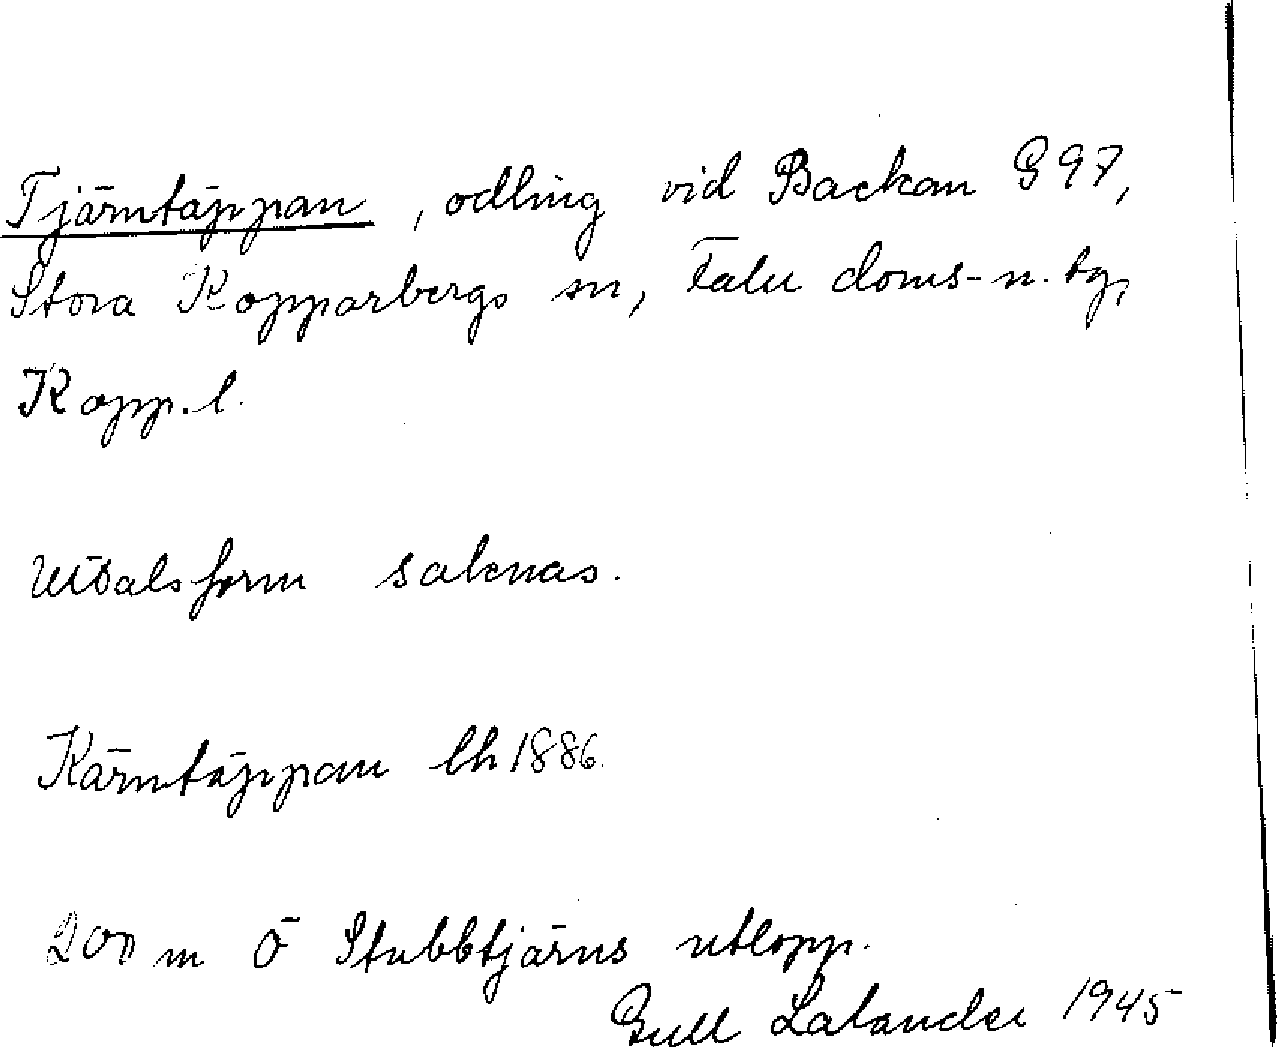 Tjärntäppan, odling vid Backan G 97,
Stora Kopparbergs sn, Falu doms-n. tg,
Kopp. l.
Uttalsform saknas.
Kärntäppan lh 1886.
200 m Ö Stubbtjärns utlopp.
Gull 1945